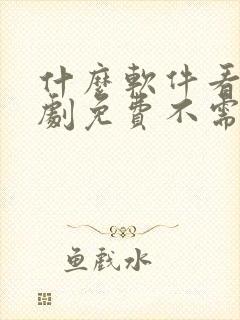 什麼軟件看
劇免費不需
鱼戲水